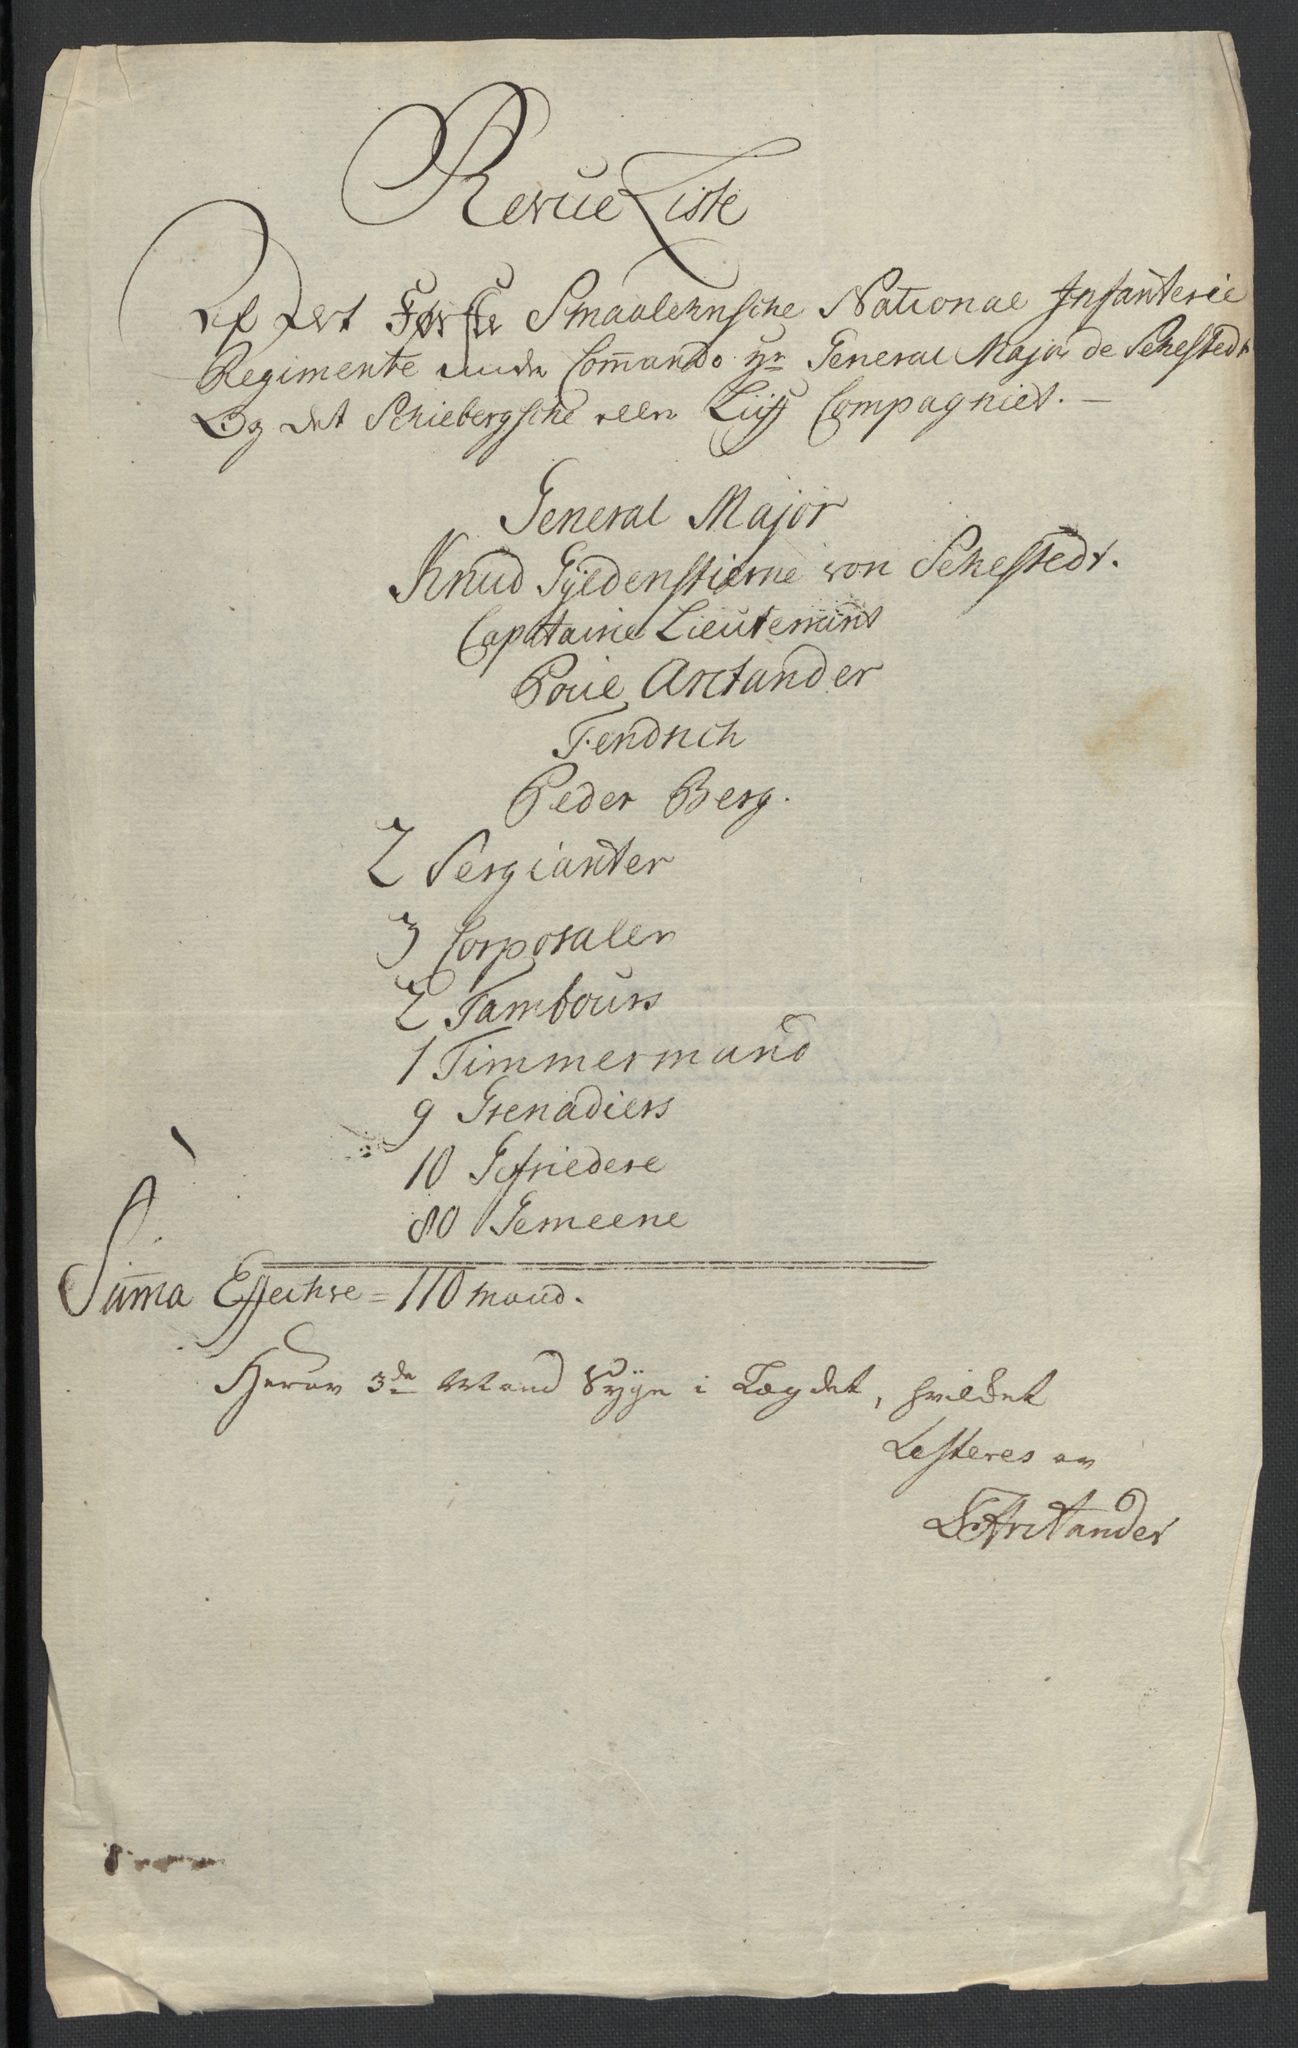 Revue Liste
Af Det Første Smaalehnsche National Infanterie
Regimente under Com̄ando Hr General Major de Sehestedt
Og det Schiebergsche eller Liff Compagniet. —
General Major
Knud Gÿldenstierne von Sehestedt.
Capitaine Lieutenant
Povel Arctander
Fendrich
Peder Berg.
2 Sergianter
3 Corporaler
2 Tambours
1 Timmermand
9 Grenadiers
10 Gefriedere
80 Gemeene
Sum̄a Effective = 110 mand.
Heraf 3de Mand Syge i Lægdet, hvilket
Testeres af
Arctander